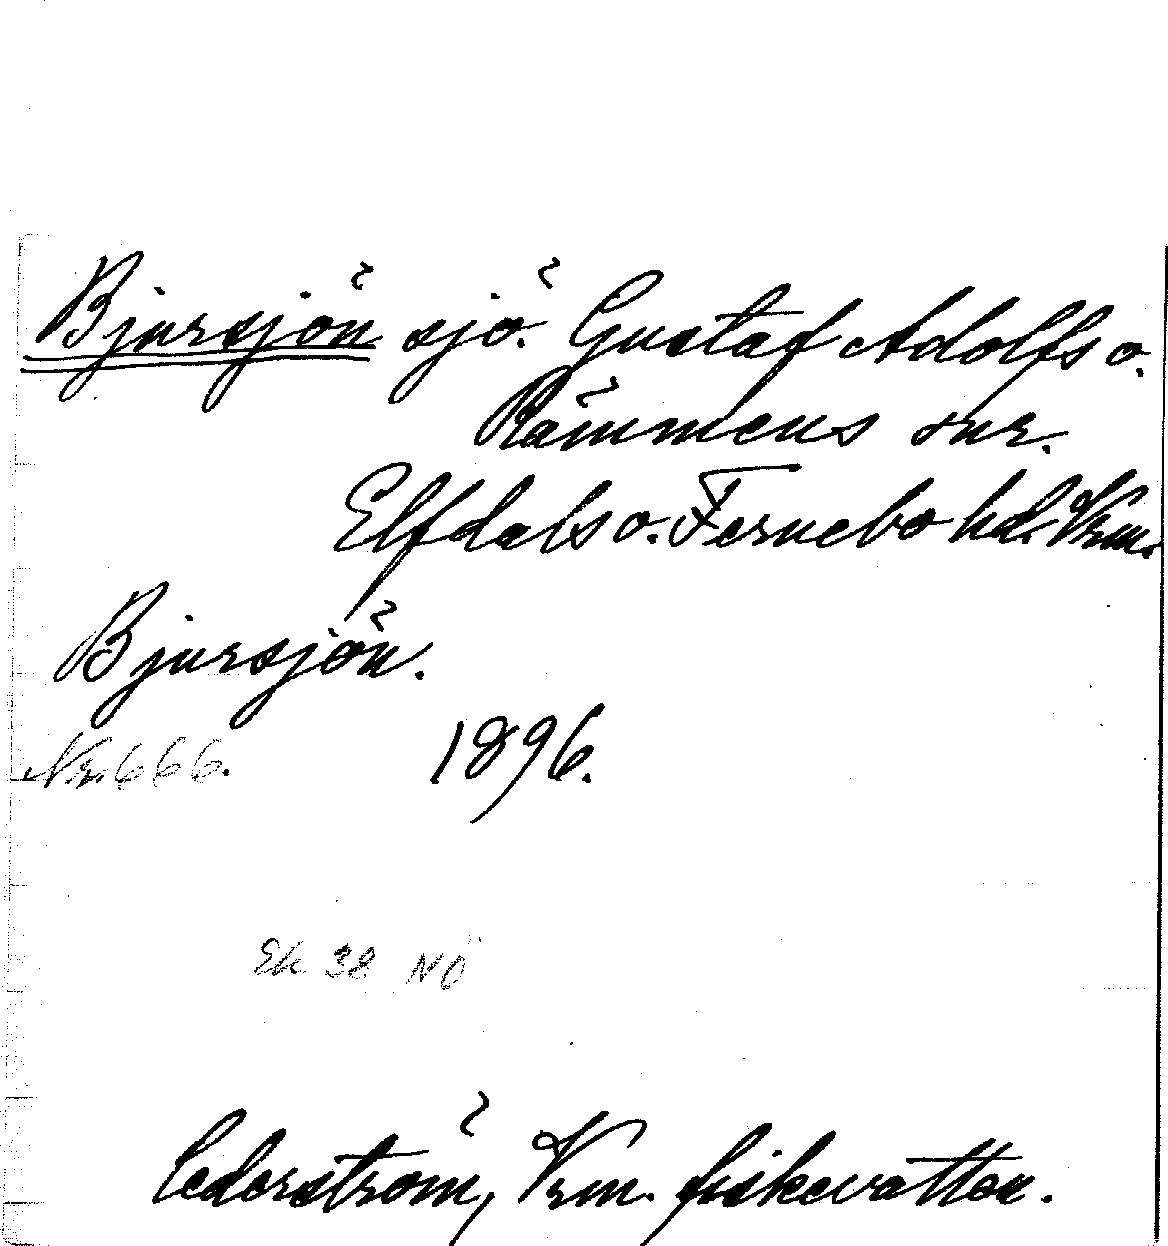 Bjursjön sjö. Gustaf Adolfs o.
Rämmens snr.
Elfdals o. Fernebo hd. Vrm.
Bjursjön.
Nr. 666. 1896.
Ek 38 NÖ
Cederström, Vrm. fiskevatten.